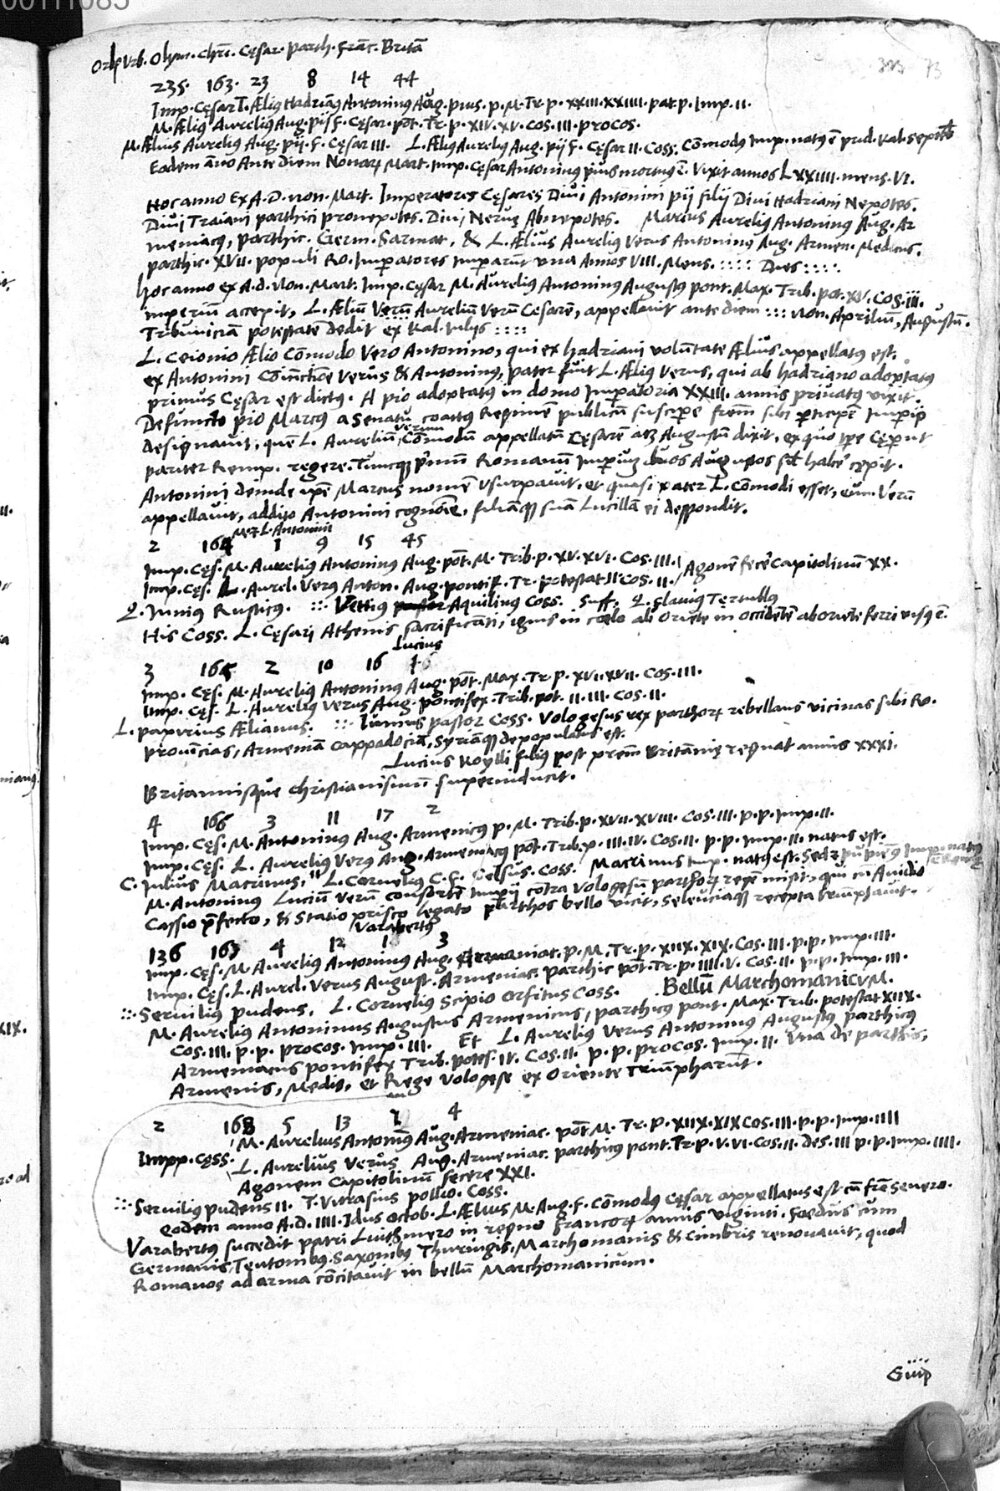 00111085
Orb. Vrb. Olym. Chri. Cęsar. Parth. Franc. Britā
393 73
235. 163. 23 8 14 44
Imp. Cęsar T. Ælius Hadrianus Antoninus Aug. pius. p. M. Tr. p. XXIII. XXIIII. pat. p. Imp. II.
M. Ælius Aurelius Aug. pij F. Cęsar. pōt. Tr. p. XIV. XV. Cos. III. procos.
M. Ælius Aurelius Aug. pij. F. Cęsar III. L. Ælius Aurelius Aug. pij F. Cęsar II. Coss. Cōmodus Imp. natus ē prid. Kal. septēb
Eodem anno Ante Diem Nonarum Mart. Imp. Cęsar Antoninus pius mortuus ē. Vixit annos LXXIIII. mens. VI.
Hoc anno Ex A. D. non. Mart. Imperatores Cęsares Divi Antonini pij filij Divi Hadriani Nepotes.
Divi Traiani parthici pronepotes. Divi Neruę Abnepotes. Marcus Aurelius Antoninus Aug. Ar
meniacus, parthic. Germ. Sarmat, & L. Ælius Aurelius Verus Antoninus Aug. Armen. Medicus.
parthic. XVII. populi Ro. Imperatores Imperarūt una Annos VIII. Mens. :::: Dies ::::
hoc anno ex A. d. Non. Mart. Imp. Cęsar M. Aurelius Antoninus Augustus pont. Max. Trib. pot. XV. Cos. III.
imperiū accepit, L. Æliū Verū Aureliū Verū Cesarē, appellavit ante diem ::: Non. Apriliū, Augustū.
Tribuniciam potestate dedit ex Kal. Iulijs ::::
L. Ceionio Ælio Cōmodo Vero Antonino, qui ex hadriani voluntate Ælius appellatus est.
ex Antonini Verus & Antoninus, pater fuit L. Ælius Verus, qui ab hadriano adoptatus
primus Cęsar est dictus. A pio adoptatus in domo Imperatoria XXIII. annis privatus vixit.
Defuncto pio Marcus a Senatu coactus Regimē publicū suscipere frem sibi participē Imperij
verum
designavit, quē L. Aureliū Cōmodū appellatū Cęsarē atq Augustū dixit, ex quo ipse Cęperūt
pariter Remp. regere. Tuncque primū Romanum Imperiū duos Augustos sil habere cepit.
Antonini deinde ipse Marcus nomē usurpavit, et quasi pater L. Cōmodi esset, eum Verū
appellavit, addito Antonini cognomē, filiāque suā Lucillā ei despondit.
M. & L. Antonini
2 164 1 9 15 45
Imp. Cęs. M. Aurelius Antoninus Aug. pōt. M. Trib. p. XV. XVI. Cos. III. Agonē fecere Capitolinū XX.
Imp. Cęs. L. Aurel. Verus Anton. Aug. pontif. Tr. potestat II Cos. II.
Q. Iunius Rusticus. ::: Vettius Aquilinus Coss. Suff. Q. Flavius Tertullus
His Coss. L. Cęsari Athenis sacrificanti, ignis in cœlo ab Oriente in occidentē ferri visus ē.
Lucius
3 165 2 10 16 16
Imp. Cęs. M. Aurelius Antoninus Aug. pōt. Max. Tr p. XVI. XVII. Cos. III.
Imp. Cęs. L. Aurelius Verus Aug. pontifex Trib. pot. II. III. Cos. II.
L. papyrius Ælianus. ::: Iunius pastor Coss. Vologesus rex parthorū rebellans vicinas sibi Ro.
provincias, Armeniā Cappadociā, Syriāque depopulatus est.
Lucius Koylli filius post prem̄ Britannię regnat annis XXXI.
Britannisque christianismū superinducit.
4 166 3 11 17 2
Imp. Cęs. M. Antoninus Aug. Armenicus p. M. Trib. p. XVII. XVIII. Cos. III. p. p. Imp. II.
Imp. Cęs. L. Aurelius Verus Aug. Armeniacus pōt. Trib. p. III. IV. Cos. II. p. p. Imp. II. natus est.
C. Iulius Macrinus. L. Cornelius C. F. Celsus. Coss. Macrinus Imp. natus est. Sed & pupienus Imp. natus
M. Antoninus Lucium verū consortē Imperij contra Vologesum parthorū regē misit, qui cū Avidio
Cassio pręfecto, & Statio prisco legato parthos bello vicit, Seleuciāque recepta triumphavit.
Varabertus
136 167 4 12 1 3
Imp. Cęs. M. Aurelius Antoninus Aug. Armeniac. p. M. Tr. p. XIIX. XIX. Cos. III. p. p. Imp. III.
Imp. Cęs. L. Aurel. Verus August. Armeniac. parthic pōt. Tr. p. IIII. V. Cos. II. p. p. Imp. III.
::: Servilius pudens. L. Cornelius Scipio Orfitus Coss. Bellū Marchomanicum.
M. Aurelius Antoninus Augustus Armenicus, parthicus pont. Max. Trib. potestat XIIX.
Cos. III. p. p. procos. Imp. III. Et L. Aurelius Verus Antoninus Augustus parthicus
Armeniacus pontifex Trib. potes. IV. Cos. II. p. p. procos. Imp. II. Una de parthis,
Armenis, Medis, et Rege Vologese ex Oriente triumpharūt.
2 168 5 13 1 4
M. Aurelius Antoninus Aug. Armeniac. pōt M. Tr. p. XIIX. XIX Cos. III. p. p. Imp. IIII
Impp. Cęss.
L. Aurelius Verus Aug. Armeniac. parthicus pont. Tr. p. V. VI. Cos. II. Des. III p. p. Imp. IIII.
Agonem Capitolinum fecere XXI.
::: Servilius pudens II. T. Vitrasius pollio. Coss.
eodem anno A. D. IIII. Idus octob. L. Ælius M. Aug. F. Cōmodus Cęsar appellatus est cū fr̄e Severo.
Varabertus succedit patri Luithmero in regno Francorū annis viginti. Foedus cum
Germanis, Teutonibus, Saxonibus, Thuringis, Marchomanis & Cimbris renovavit, quod
Romanos ad arma cōcitavit in bellū Marchomanicum.